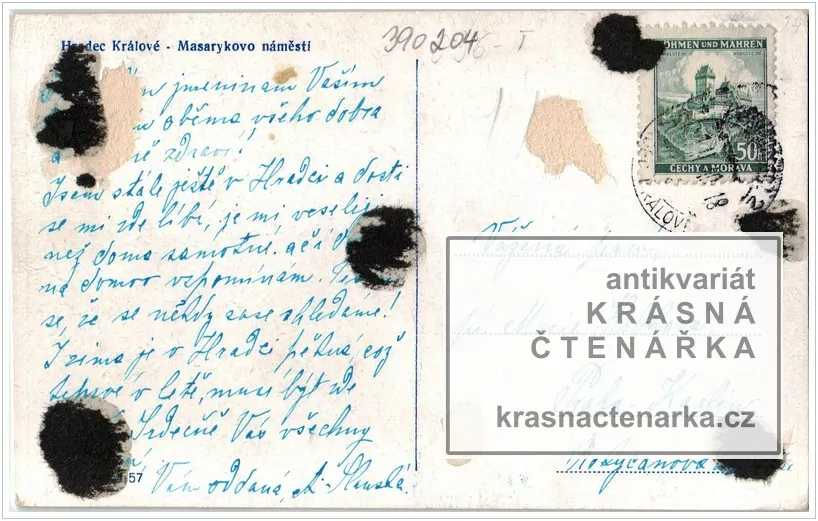 Hradec Králové - Masarykovo náměstí
390204
I
jmeninám Vašim
oběma všeho dobra
a zdraví!
Jsem stále ještě v Hradci a dosti
se mi zde líbí, je mi veseleji
než doma samotné, ač i
na domov vzpomínám.
se, že se někdy zase shledáme!
I zima je v Hradci pěkná, což
teprve v létě, musí být zde
Srdečně Vás všechny
Vám oddaná,
57
BÖHMEN UND MÄHREN
50
ČECHY A MORAVA
KRÁLOVÉ
18
Vážená paní
Marie
Praha - Karlín
Rokycanova
antikvariát
KRÁSNÁ
ČTENÁŘKA
krasnactenarka.cz